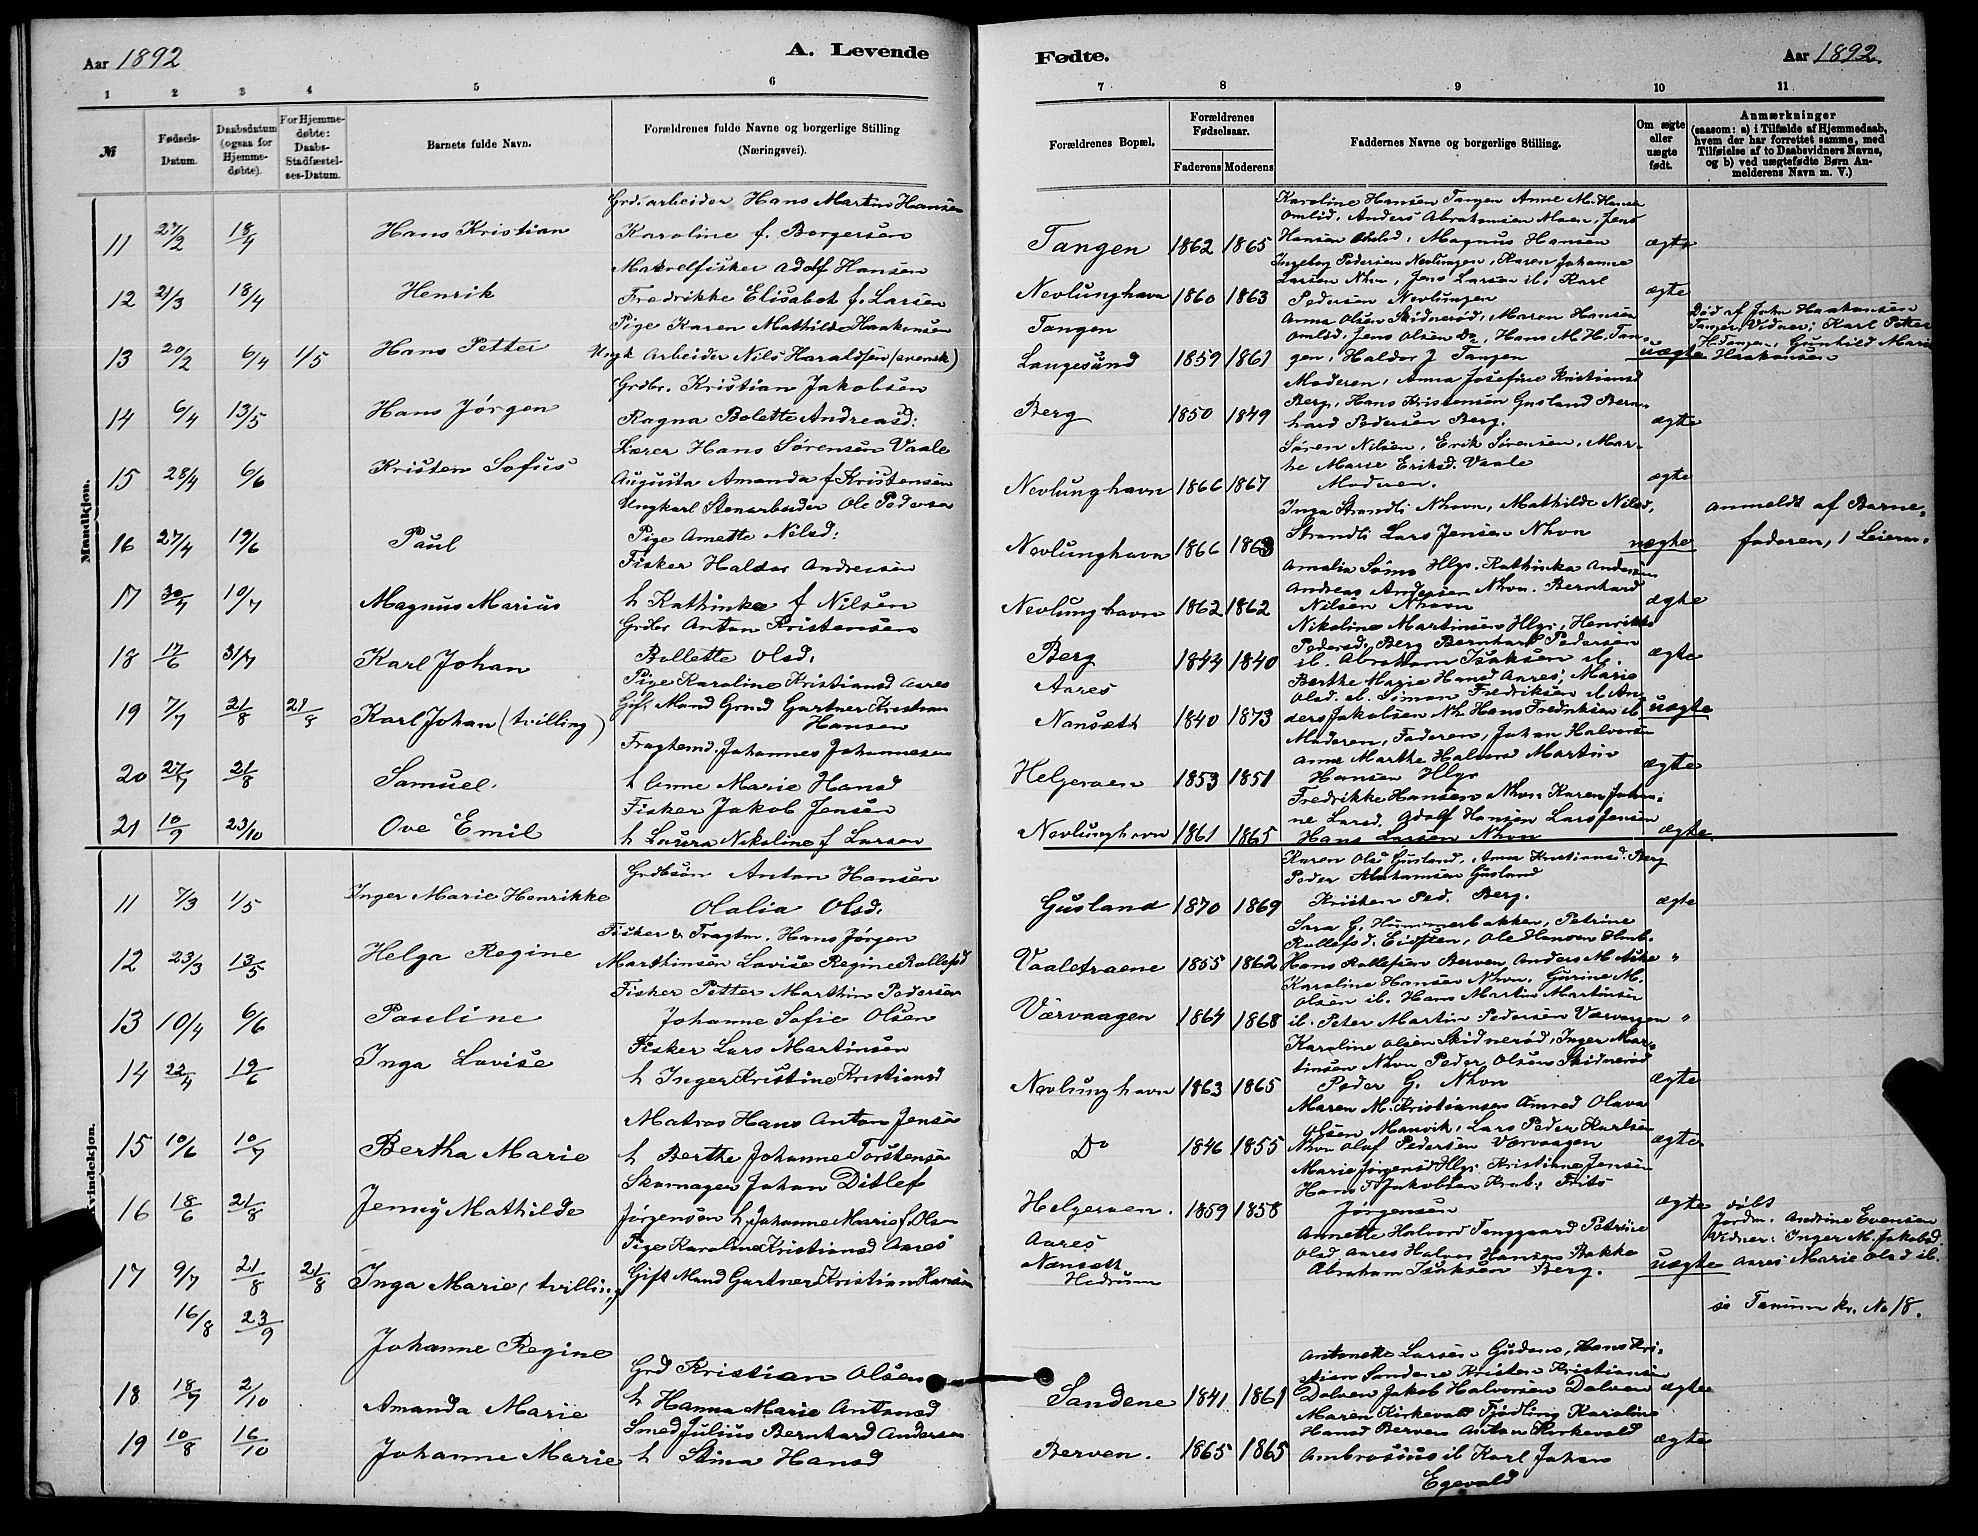 Aar 1892
A. Levende
1 2 3 4 5 6
№
Fødsels-Datum.
Daabsdatum (ogsaa for Hjemmedøbte).
For Hjemmedøbte: Daabs-Stadfæstelses-Datum.
Barnets fulde Navn.
Forældrenes fulde Navne og borgerlige Stilling (Næringsvei).
Mandkjøn.
Grdsarbeider Hans Martin Hansen
11 27/2 18/4 Hans Kristian Karoline f. Borgersen
Makrelfisker Adolf Hansen
12 21/3 18/4 Henrik Fredrikke Elisabet f. Larsen
Pige Karen Mathilde Haakensen
13 20/2 6/4 1/5 Hans Petter Ungk Arbeider Nils Haraldsen (svensk)
Grdbr. Kristian Jakobsen
14 6/4 13/5 Hans Jørgen Ragna Bolette Andreasd:
Lærer Hans Sørensen Vaale
15 28/4 6/6 Kristen Sofus Augusta Amanda f Kristensen
Ungkarl Stenarbeider Ole Pedersen
16 27/4 19/6 Paul Pige Anette Nilsd:
Fisker Haldor Andersen
17 30/4 10/7 Magnus Marius h Kathinka f Nilsen
Grdbr Anton Kristensen
18 17/6 31/7 Karl Johan Bollette Olsd.
Pige Karoline Kristiansd Aares
19 7/7 21/8 21/8 Karl Johan (tvilling) Gift Mand Grmd Gartner Kristian Hansen
Fragtemd. Johannes Johannesen
20 27/7 21/8 Samuel. h Anne Marie Hansd
Fisker Jakob Jensen
21 10/9 23/10 Ove Emil h Laura Nikoline f Larsen
Kvindekjøn.
Grdbsøn Anton Hansen
11 7/3 1/5 Inger Marie Henrikke Olalia Olsd.
Fisker & Fragtm. Hans Jørgen
12 23/3 13/5 Helga Regine Marthinsen Lovise Regine Rollefsd
Fisker Petter Marthin Pedersen
13 10/4 6/6 Pauline Johanne Sofie Olsen
Fisker Lars Martinsen
14 22/4 19/6 Inga Lovise h Inger Kristine Kristiansd
Matros Hans Anton Jensen
15 10/6 10/7 Bertha Marie h Berthe Johanne Torstensen
Skomager Johan Ditlef
16 18/6 21/8 Jenny Mathilde Jørgensen h Johanne Marie f. Olsen
Pige Karoline Kristiansd Aares
17 9/7 21/8 21/8 Inga Marie (tvilling) Gift Mand Gartner Kristian Hansen
16/8 23/9 Johanne Regine
Grd Kristian Olsen
18 18/7 2/10 Amanda Marie h Hanna Marie Antonsd
Smed Julius Bernhard Andersen
19 10/8 16/10 Johanne Marie h Stina Hansd
Fødte.
Aar 1892.
7 8 9 10 11
Forældrenes Bopæl.
Forældrenes Fødselsaar.
Faderens Moderens
Faddernes Navne og borgerlige Stilling.
Om ægte eller uægte født.
Anmærkninger (saasom: a) i Tilfælde af Hjemmedaab, hvem der har forrettet samme, med Tilføielse af to Daabsvidners Navne, og b) ved uægtefødte Børn Anmelderens Navn m. V.)
Karoline Hansen Tangen Anne M. Hansen
Omlid, Anders Abrahamsen Moen, Jens
Tangen 1862 1865 Hansen Omlid, Magnus Hansen ægte
Ingeborg Pedersen Nevlungen, Karen Johanne
Larsen Nhvn, Jens Larsen ib, Karl
Nevlunghavn 1860 1863 Pedersen Nevlungen ægte
Anna Olsen Skidnerød, Maren Hansen
Tangen Omlid, Jens Olsen Do, Hans M. H. Tan-
Langesund 1859 1861 gen, Haldor J Tangen uægte
Døb af John Haakonsen
Tangen, Vidner; Karl Petter
H. Tangen, Gunhild Marie
Haakonsen
Moderen, Anna Josefine Kristiansd
Berg, Hans Kristensen Gusland Bern-
Berg 1850 1849 hard Pedersen Berg. ægte
Søren Nilsen, Erik Sørensen, Mar-
the Marie Eriksd. Vaale
Nevlunghavn 1866 1867 Moderen. ægte
Inga Strandli Nhvn, Mathilde Nilsd,
Nevlunghavn 1866 1863 Strandli Lars Jensen Nhvn uægte
Anmeldt af Barne-
faderen, 1 Leierm.
Amalia Sørns Hlgr. Kathinka Andersen
Andreas Andersen Nhvn. Bernhard
Nevlunghavn 1862 1862 Nilsen Nhavn ægte
Nikoline Martinsen Hlgr, Henrikke
Pedersd. Berg Bernhard Pedersen
Berg 1844 1840 ib. Abraham Isaksen ib. ægte
Berthe Marie Hansd Aares, Marie
Aares Olsd. ib. Simon Fredriksen ib An-
Nanseth 1840 1873 ders Jakobsen Nh Hans Fredriksen ib uægte
Moderen, Faderen, Johan Halvorsen
Anne Marthe Halvorsd Martin
Helgeroen 1853 1851 Hansen Hlgr ægte
Fredrikke Hansen Nhvn Karen Johan-
ne Larsd. Adolf Hansen Lars Jensen
Nevlunghavn 1861 1865 Hans Larsen Nhvn ægte
Karen Olsd Gusland, Anna Kristiansd. Berg
Peder Abrahamsen Gusland
Gusland 1870 1869 Kristen Ped. Berg. ægte
Sara G. Hummerbakken, Petrine
Rollefsd. Eidsten, Ole Hansen Omb.
Vaaletraene 1855 1862 Hans Rollefsen Berven Anders M Aske "
Karoline Hansen Nhvn. Gurine M.
Olsen ib. Hans Martin Martinsen
Værvaagen 1864 1868 ib. Peter Martin Pedersen Værvaagen "
Karoline Olsen Skidnerød, Inger Mar-
tinsen Nhvn Peder Olsen Skidnerød
Nevlunghavn 1863 1865 Peder G. Nhvn ægte
Maren M. Kristiansen Omred Olava
Olsen Manvik, Lars Peder Karlsen
Do 1846 1855 Nhvn Olaf Pedersen Værvaagen ægte
Marie Jørgensd Hlgr. Kristiane Jensen
Hans T Jakobsen Krab. Frits
Helgeroen. 1859 1858 Jørgensen ægte
Annette Halvord Tanggaard Petrine
Aares Olsd Aares Halvor Hansen Bakke
Nanseth Hedrum Abraham Isaksen Berg. uægte
døbt
Jordm. Andrine Evensen
Vidner: Inger M. Jakobsd.
Aares Marie Olsd ib.
se Tanum kr. No 18.
Antonette Larsen Gudem, Hans Kri-
stian Sandene Kristen Kristiansen
Sandene 1841 1861 Dolven Jakob Halvorsen Dolven ægte
Maren Kirkevold Fjødling Karoline
Hansd Berven Anton Kirkevold
Berven. 1865 1865 Ambrosius ib Karl Johan ægte
Egevald